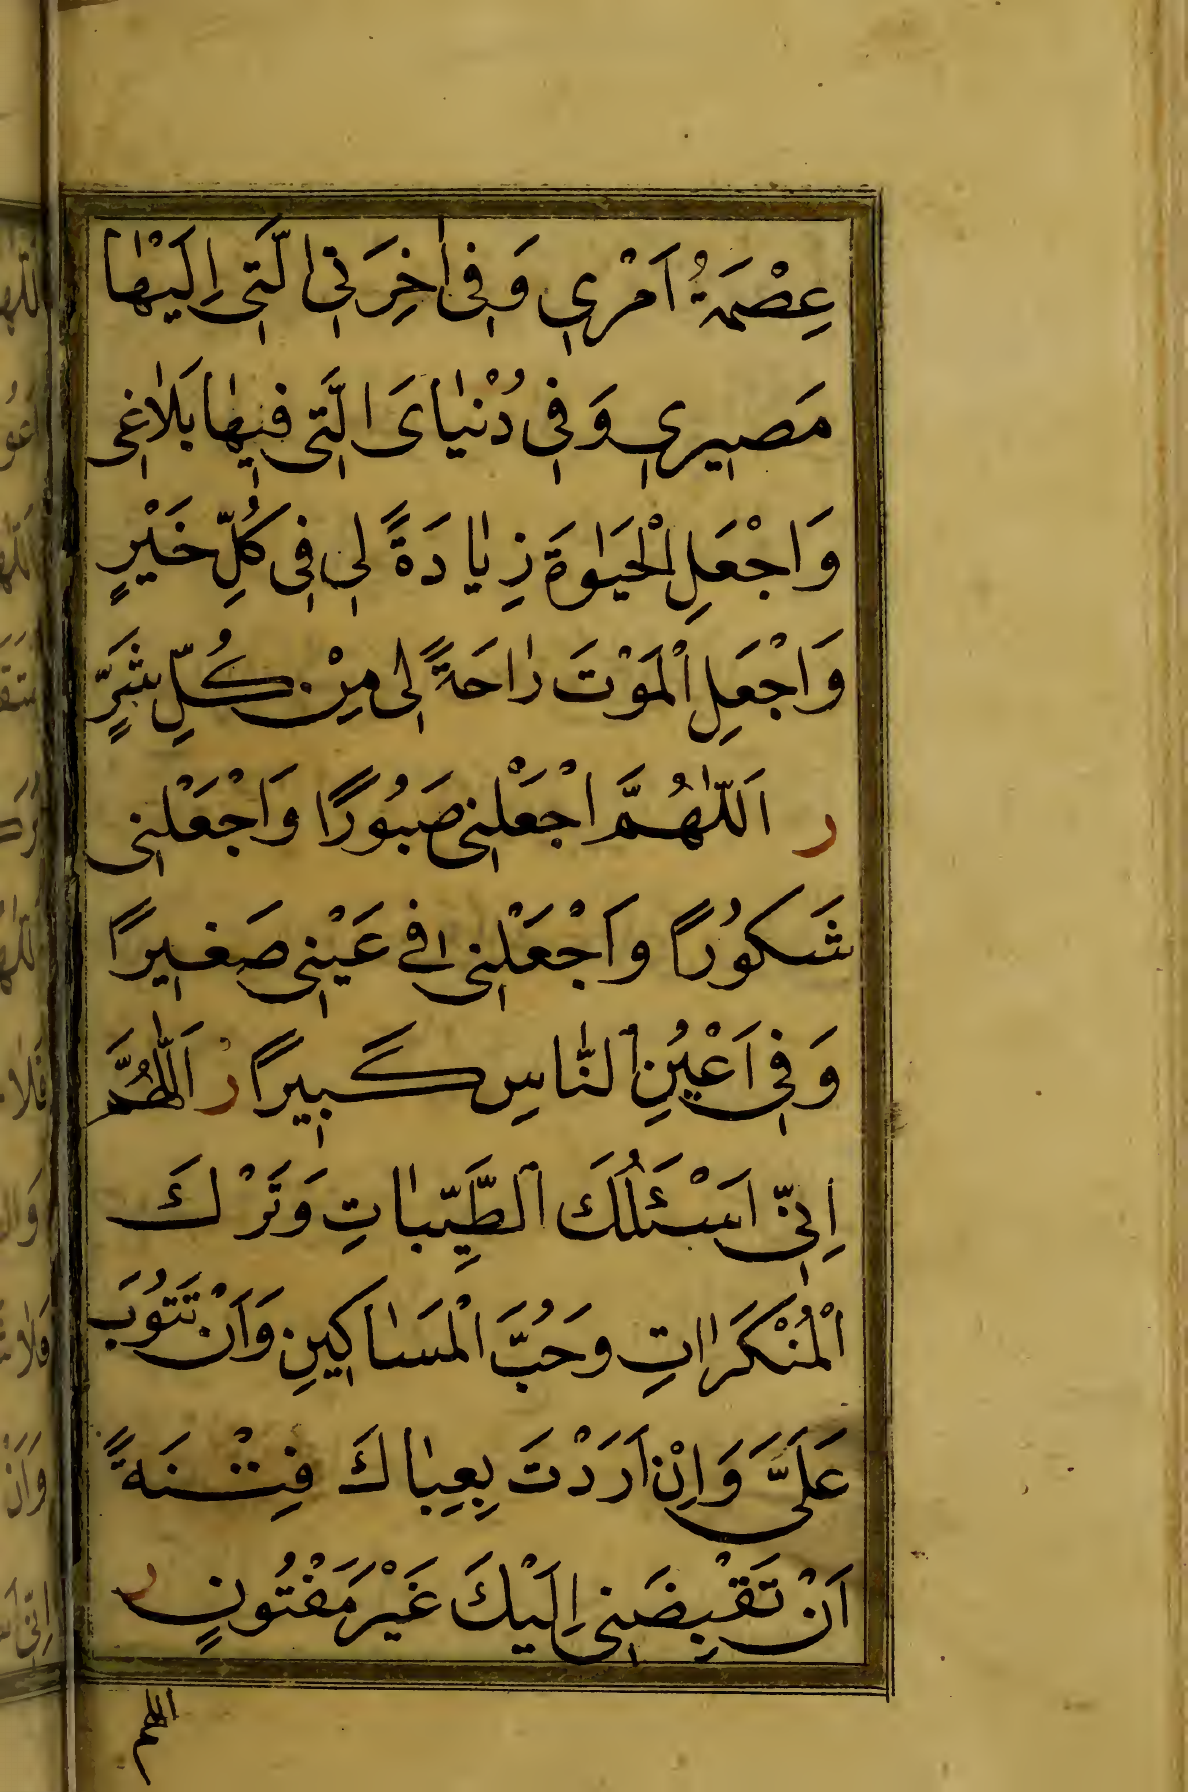 عِصْمَةُ اَمْرِي وَفِي اٰخِرَتِي الَّتِي اِلَيْهَا
مَصِيرِي وَفِي دُنْيَايَ الَّتِي فِيهَا بَلَاغِي
وَاجْعَلِ الْحَيٰوةَ زِيَادَةً لِي فِي كُلِّ خَيْرٍ
وَاجْعَلِ الْمَوْتَ رَاحَةً لِي مِنْ كُلِّ شَرٍّ
ر اَللّٰهُمَّ اجْعَلْنِي صَبُورًا وَاجْعَلْنِي
شَكُورًا وَاجْعَلْنِي فِي عَيْنِي صَغِيرًا
وَفِي اَعْيُنِ النَّاسِ كَبِيرًا ر اَللّٰهُمَّ
اِنِّي اَسْئَلُكَ الطَّيِّبَاتِ وَتَرْكَ
الْمُنْكَرَاتِ وَحُبَّ الْمَسَاكِينِ وَاَنْ تَتُوبَ
عَلَيَّ وَاِنْ اَرَدْتَ بِعِبَاكَ فِتْنَةً
اَنْ تَقْبِضَنِي اِلَيْكَ غَيْرَ مَفْتُونٍ ر
اللهم